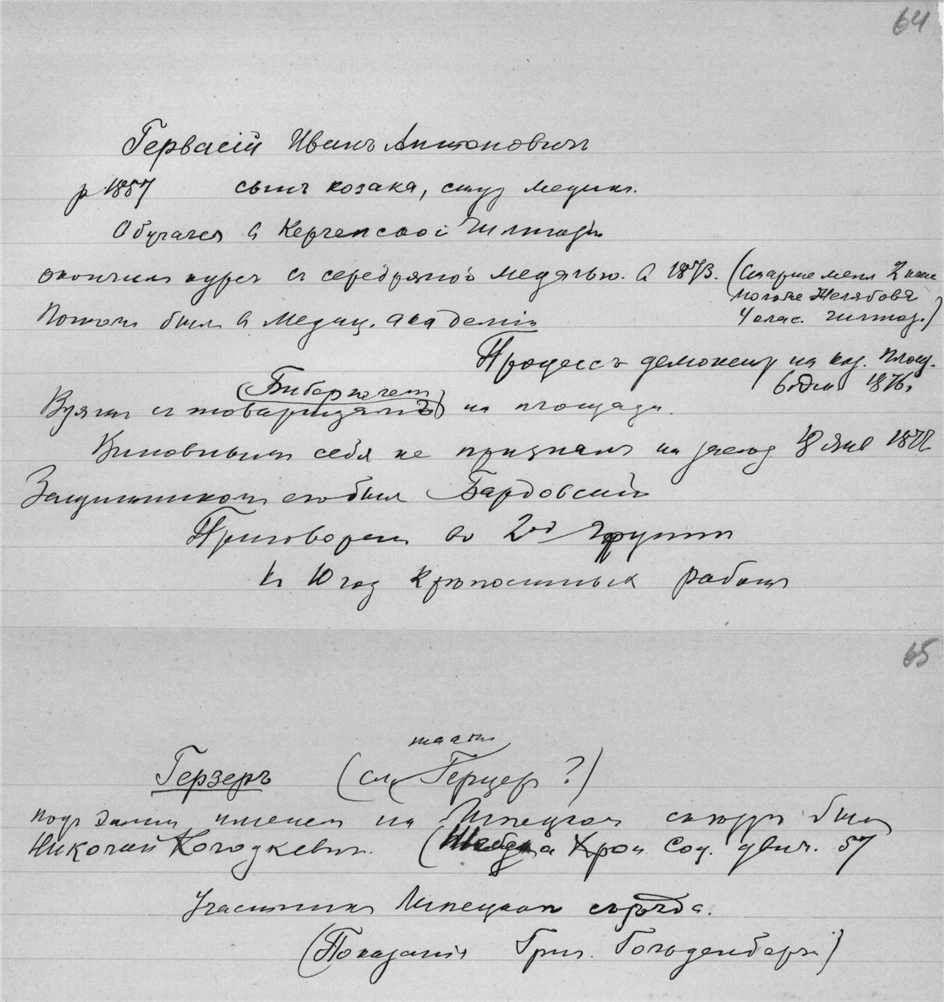 64
Гервасій Иванъ Антоновичъ
р 1857 сынъ козака, студ медик.
Обучался въ Керченской Гимназіи
окончилъ курсъ съ серебряной медалью. в 1873. (Старше меня 2 клас
моложе Желябова
4 клас. гимназ.)
Потомъ былъ в Медиц. академіи
Процессъ демонстр на каз. площ.
6 дек 1876 г
(Бибергалем)
Взятъ съ товарищамъ на площади.
Виновнымъ себя не призналъ на засед 18 янв 1877
Защитникомъ его былъ Бардовскій
Приговоренъ во 2ой группѣ
къ 10 год крѣпостныхъ работъ
65
Герзеръ (см Герцер?)
подъ этимъ именемъ на Липецком съѣздѣ был
Николай Колодкевич. ( Хрон Соц. движ. 57
Участникъ Липецкаго съѣзда.
(Показанія Григ. Гольденберга)